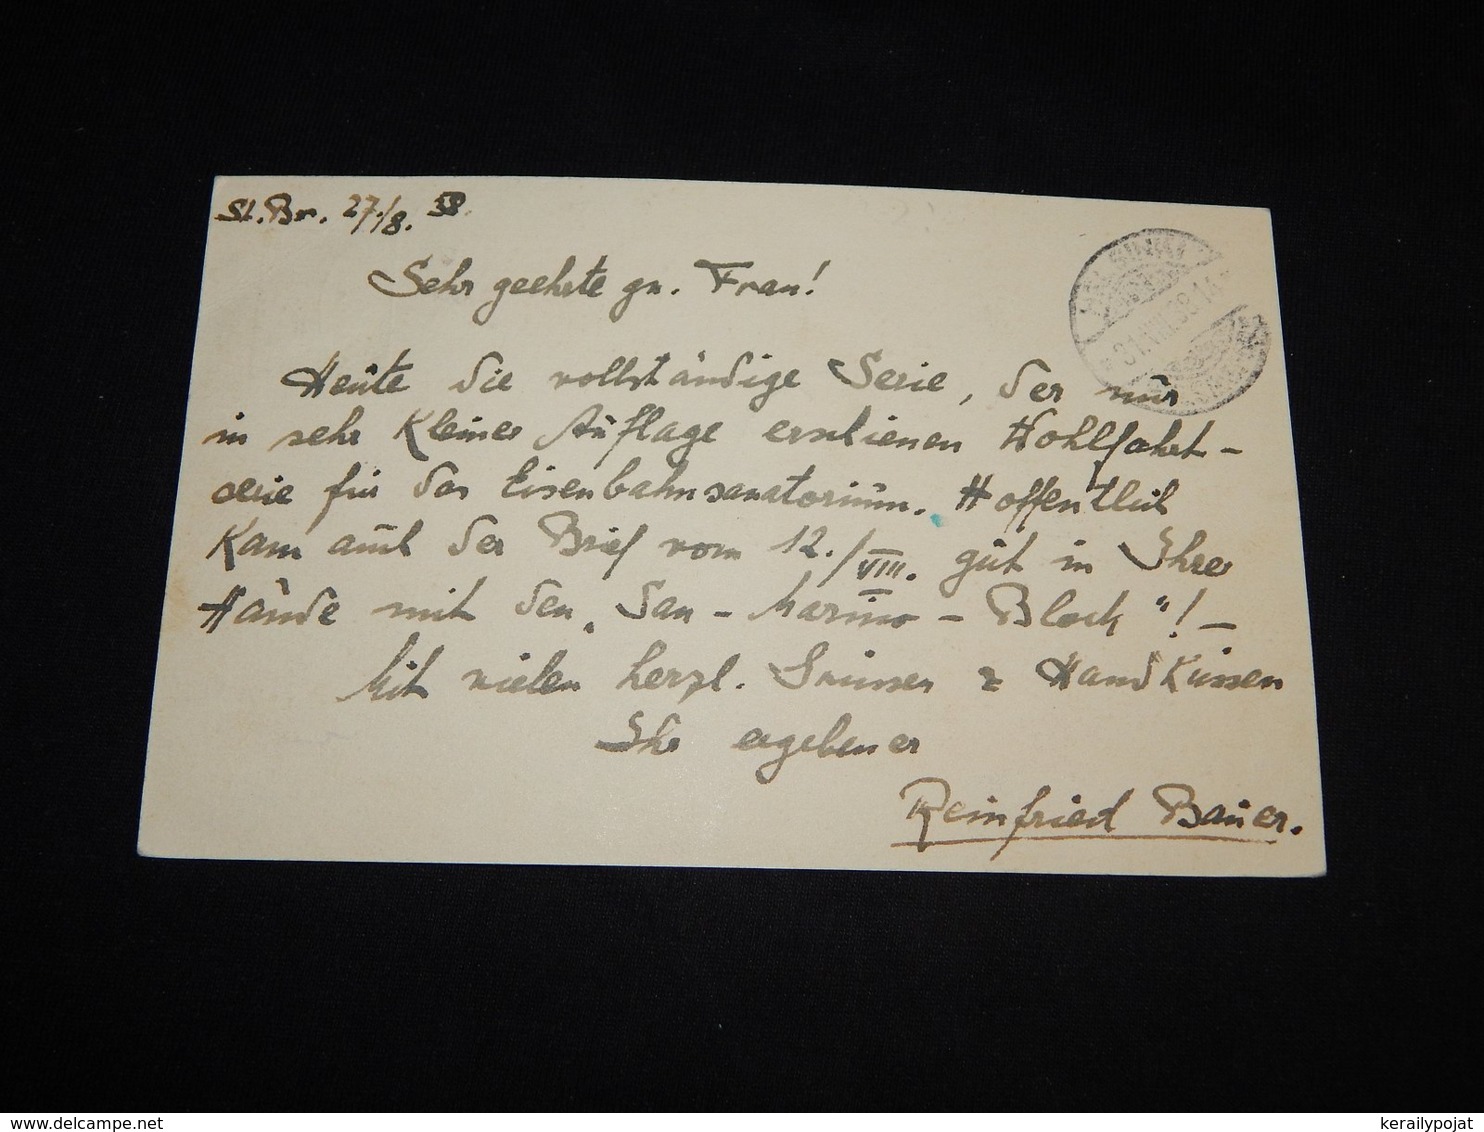 St. Br. 27./8. 38.
Sehr geehrte gn. Frau!
Heute die vollständige Serie, der nur
in sehr kleiner Auflage erschienen Wohlfahrt-
serie für das Eisenbahnsanatorium. Hoffentlich
kam auch der Brief vom 12./VIII. gut in Ihre
Hände mit den „San-Marino-Block"!-
Mit vielen herzl. Grüssen & Handküssen
Ihr ergebener
Reinfried Bauer.
HELSINKI
31.VIII.38.14
HELSINGFORS
www.delcampe.net
kerailypojat